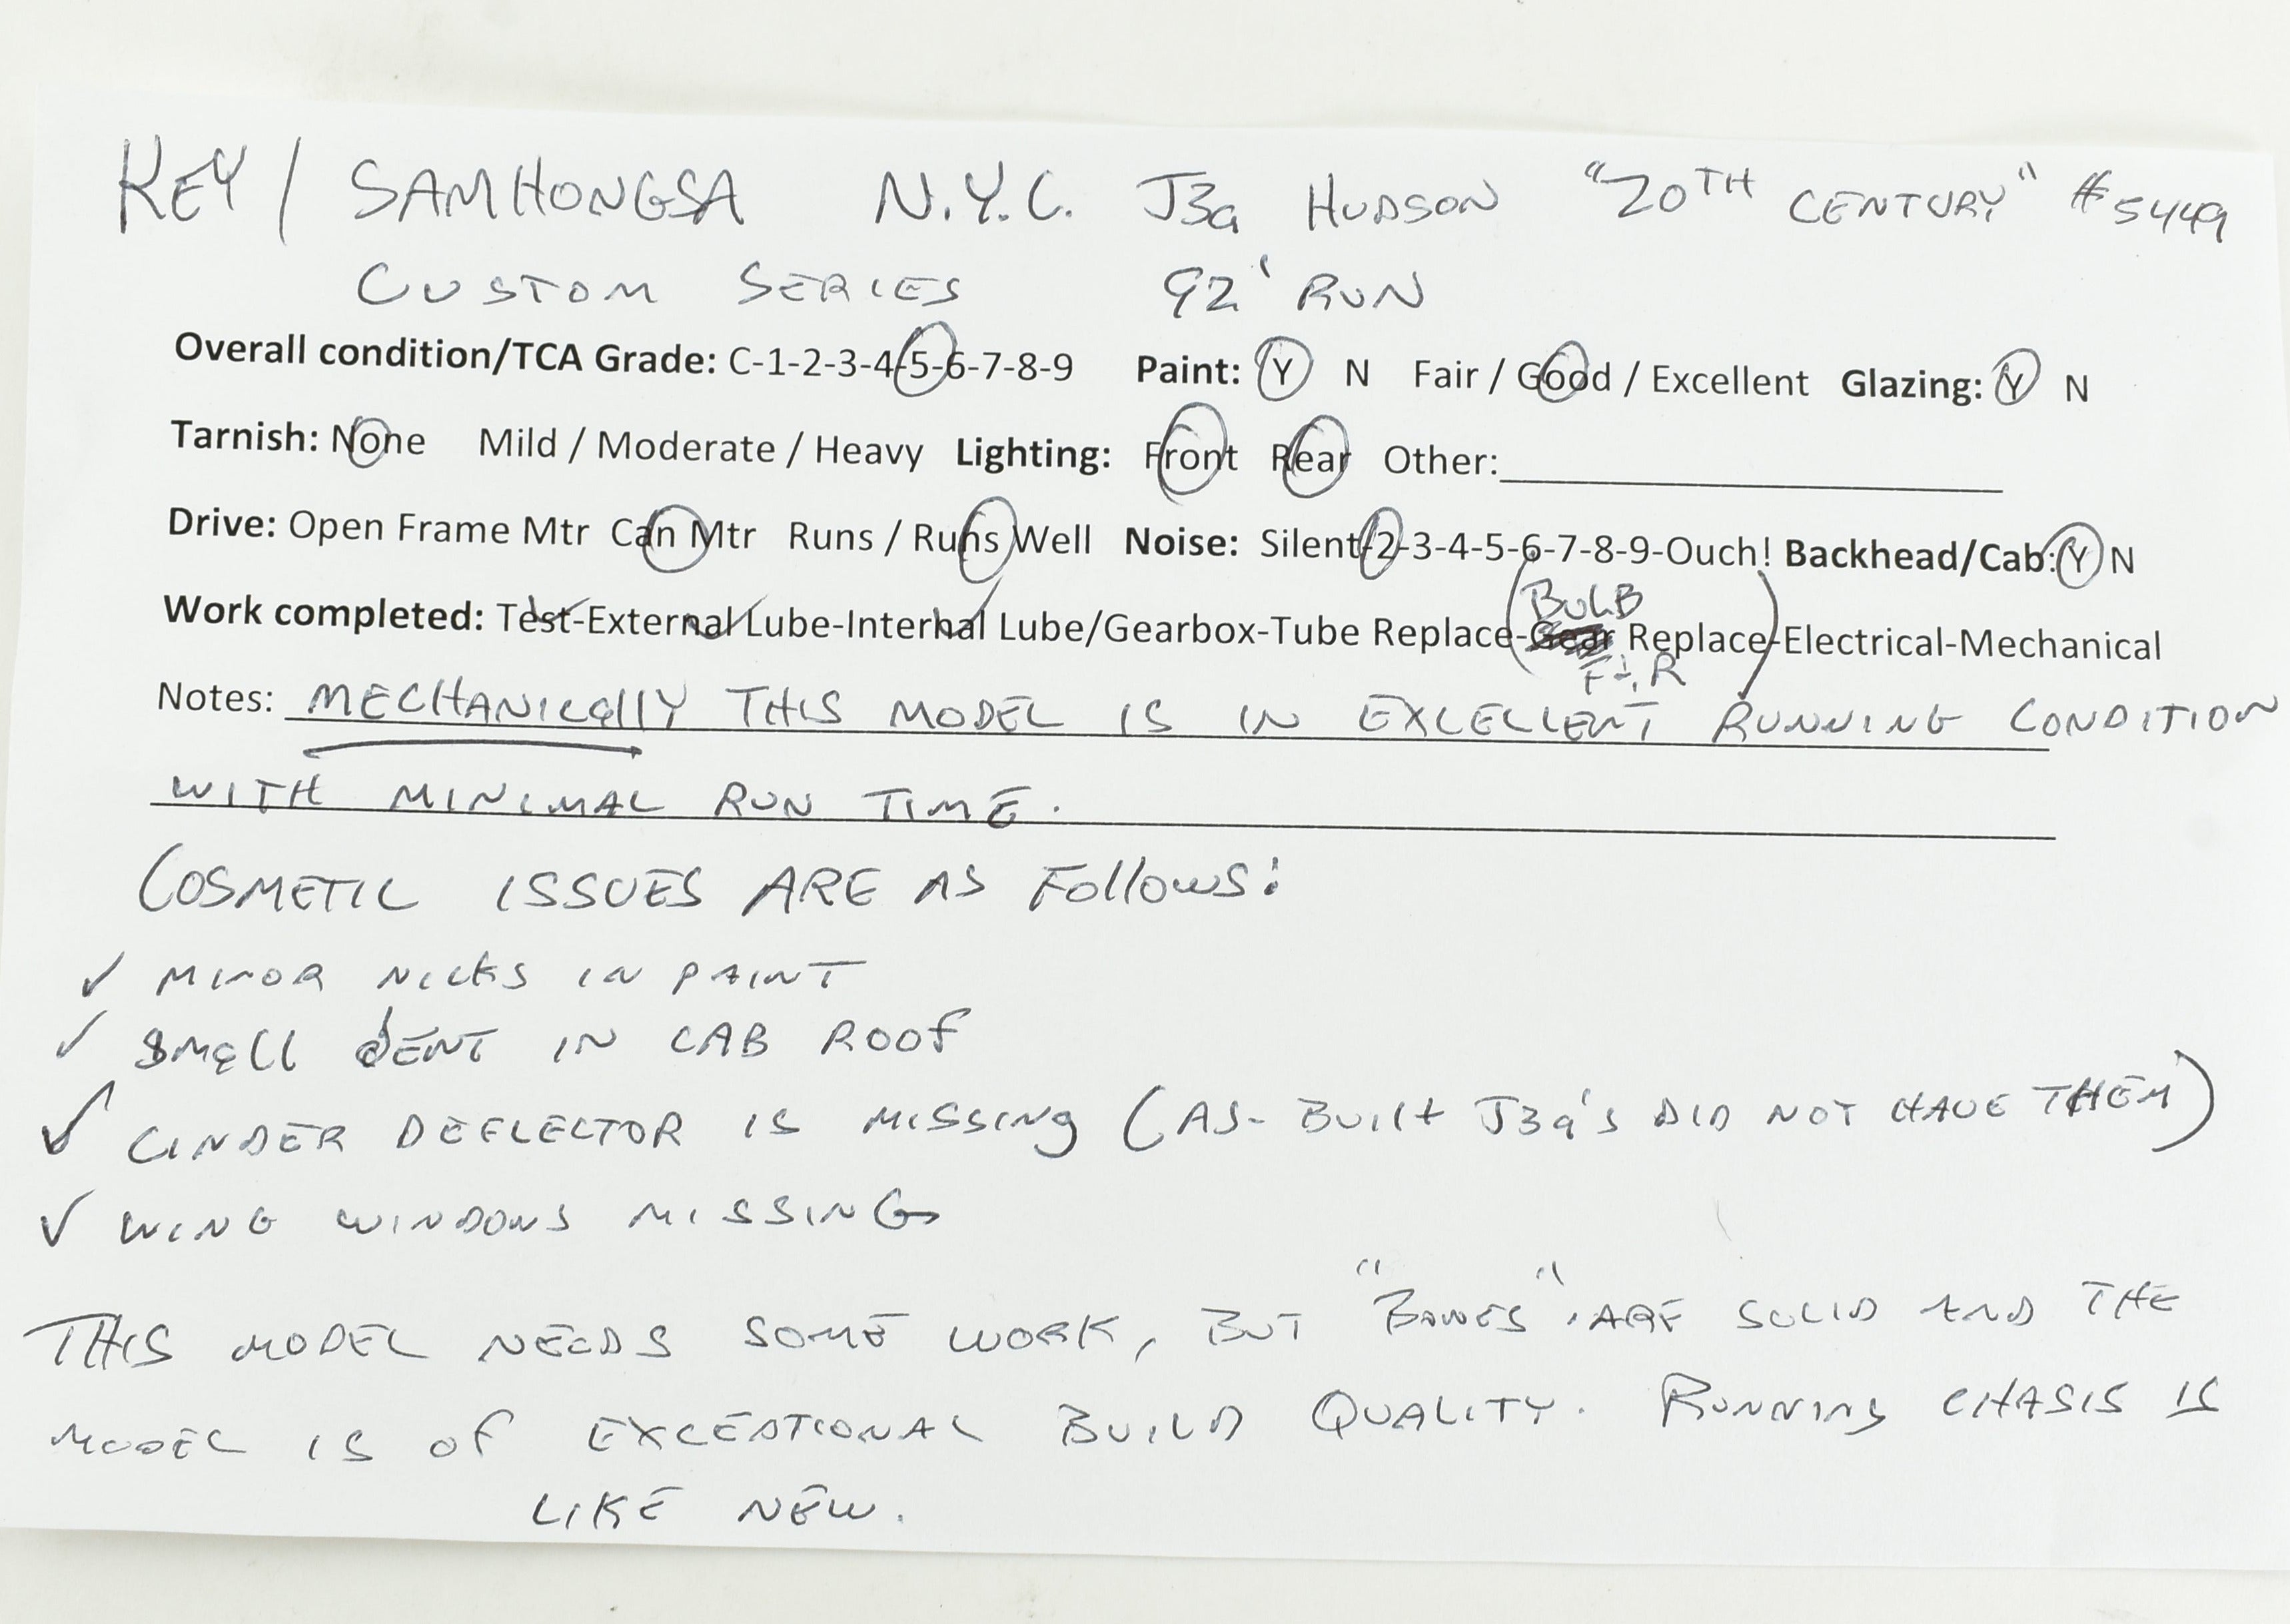 KEY / SAMHONGSA N.Y.C. J3a HUDSON "20TH CENTURY" #5449
CUSTOM SERIES 92' RUN
Overall condition/TCA Grade: C-1-2-3-4-5-6-7-8-9 Paint: Y N Fair / Good / Excellent Glazing: Y N
Tarnish: None Mild / Moderate / Heavy Lighting: Front Rear Other:
Drive: Open Frame Mtr Can Mtr Runs / Runs Well Noise: Silent-2-3-4-5-6-7-8-9-Ouch! Backhead/Cab: Y N
BULB
Work completed: Test-External Lube-Internal Lube/Gearbox-Tube Replace-Gear Replace-Electrical-Mechanical
F+R
Notes: MECHANICallY THIS MODEL IS IN EXCELLENT RUNNING CONDITION
WITH MINIMAL RUN TIME.
COSMETIC ISSUES ARE AS Follows:
✓ MINOR NICKS IN PAINT
✓ SMall dENT IN CAB ROOf
✓ CINDER DEFLECTOR IS MISSINg (AS-BUIlt J3a's DID NOT HAVE THEM)
✓ WING WINDOWS MISSING
THIS MODEL NEEDS SOME WORK, BUT "BONES" ARE SOLID AND THE
MODEL IS Of EXCEPTIONAL BUILD QUALITY. RUNNING CHASIS IS
LIKE NEW.